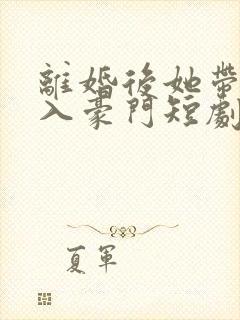 離婚後她帶
入豪門短劇
夏軍